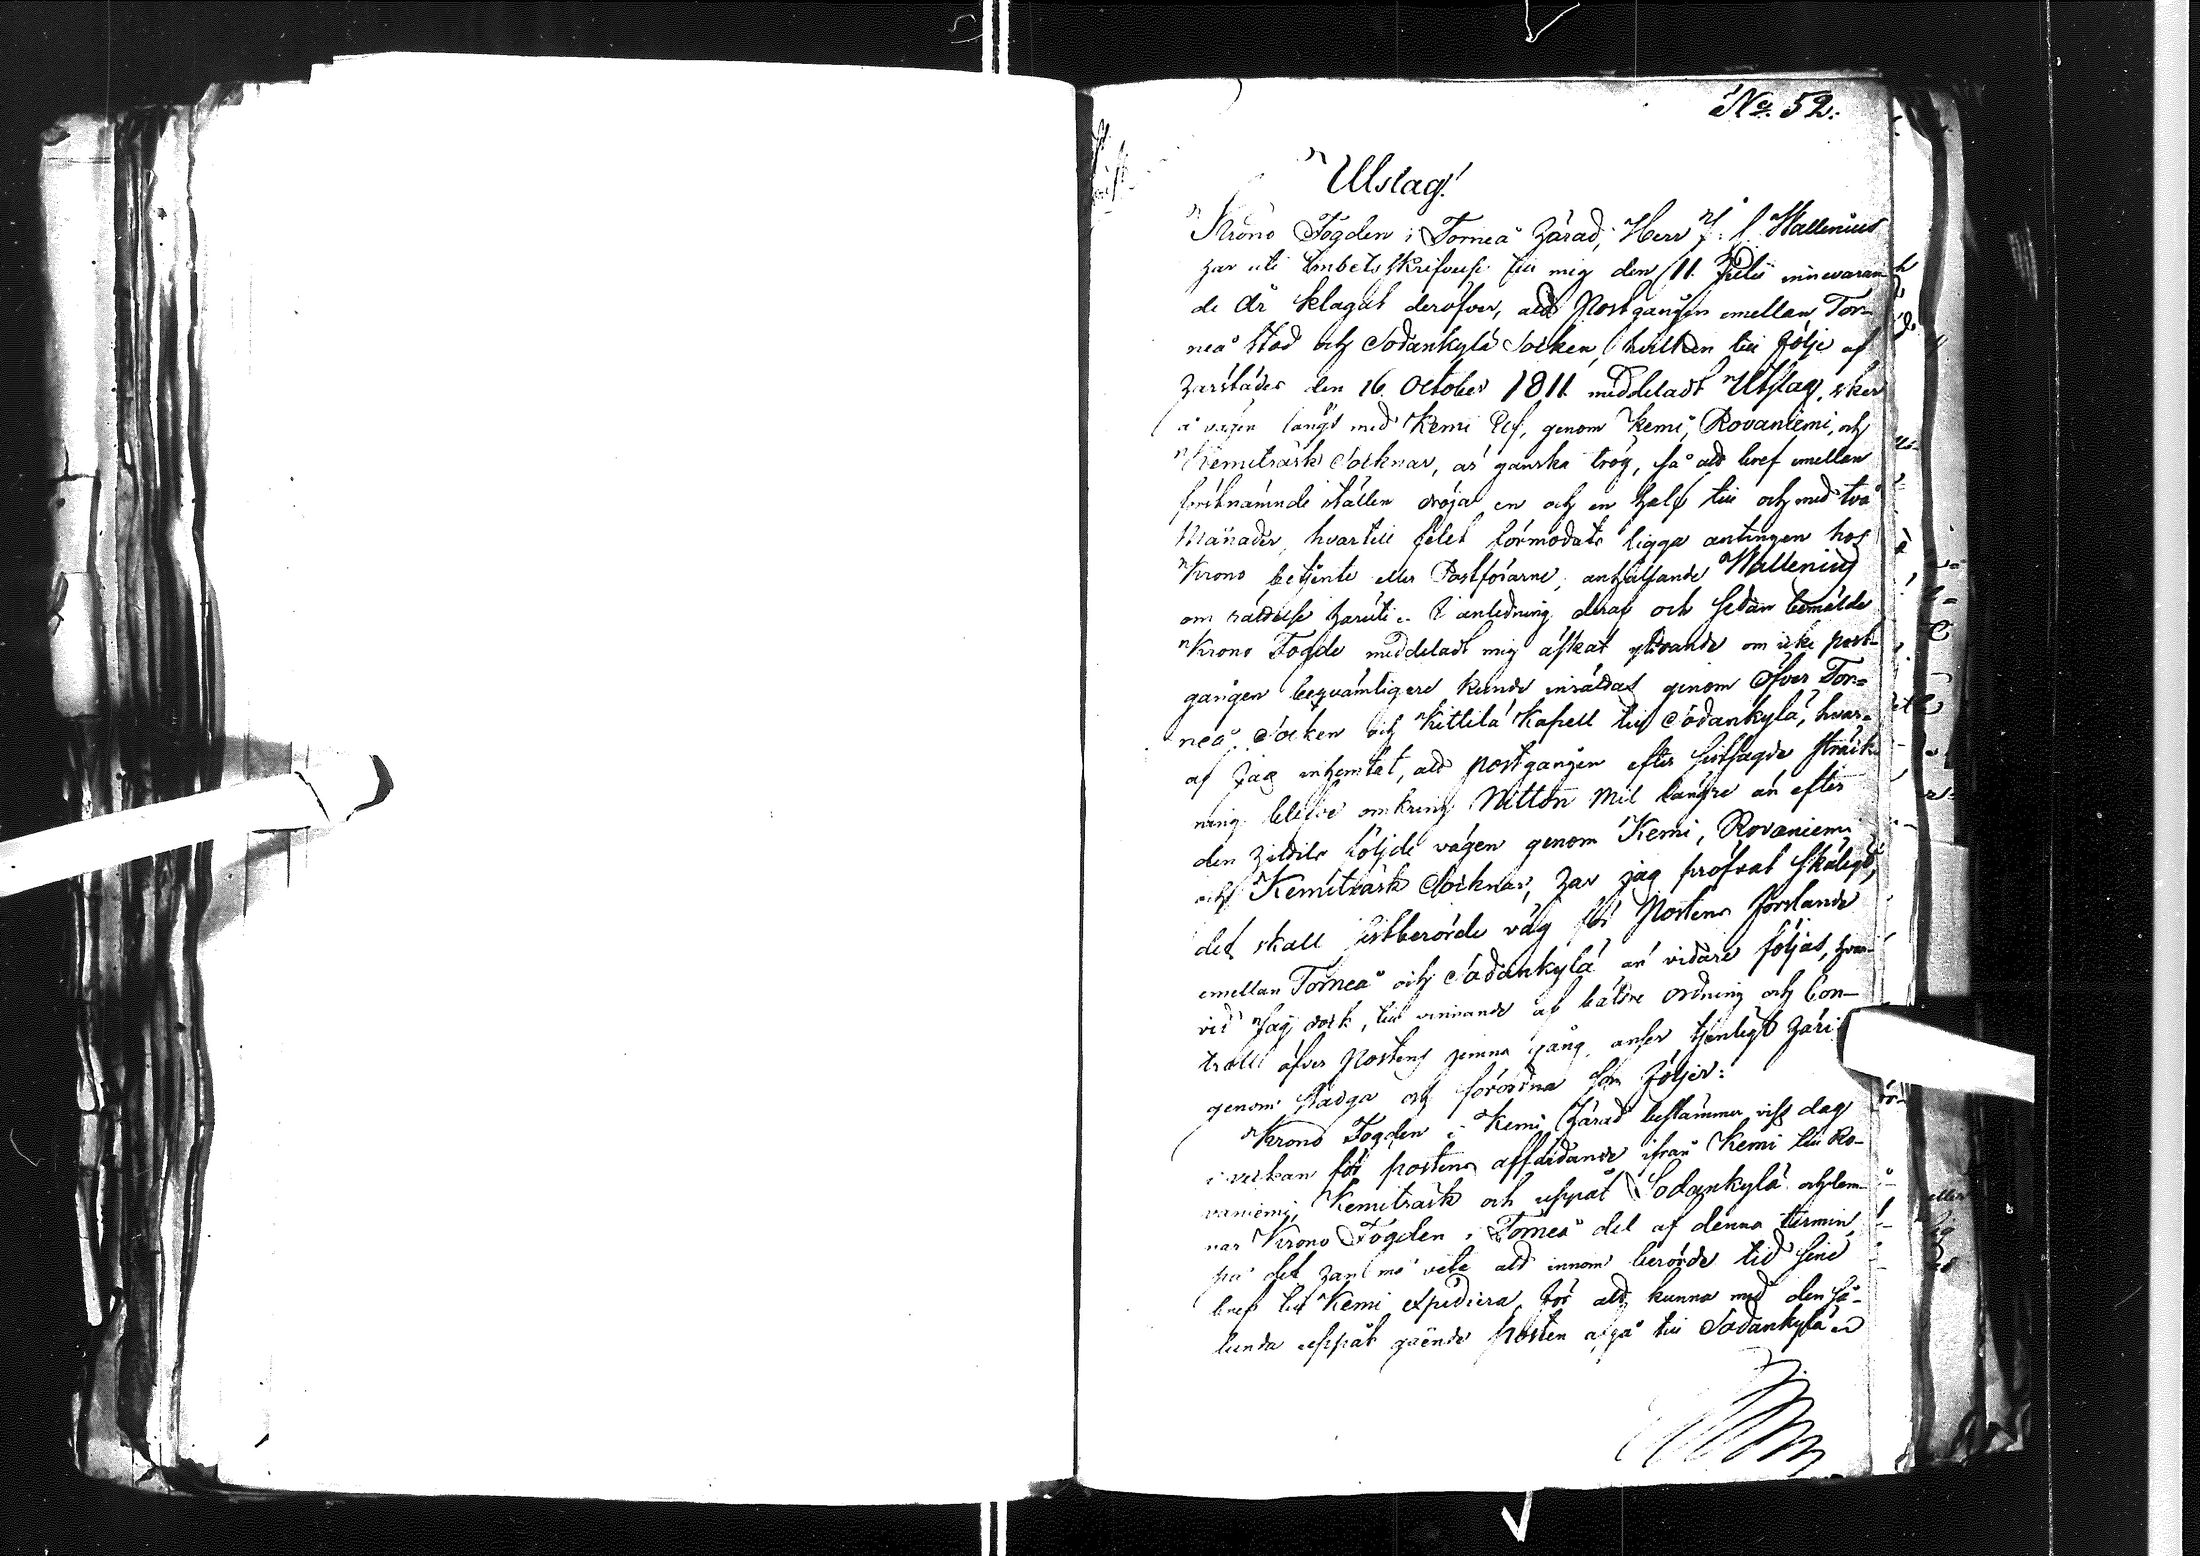 No. 52.
Utslag!
Krono Fogden i Torneå härad, Herr J. Wallenius
har uti Embets skrifvelse till mig den 11 Julii innevaran-
de år klagat deröfver, att Postgången emellan Tor-
neå stad och Sodankylä Socken, hvilken till följe af
härstädes den 16 October 1811 meddeladt Utslag, sker
å vägen längs med Kemi Elf, genom Kemi, Rovaniemi, och
Kemiträsk Socknar, är ganska trög, så att bref emellan
förstnämnde ställen dröja en och en half till och med två
Månader, hvartill felet förmodats ligga antingen hos
Krono betjente eller Postförarne, anhållande Wallenius
om rättelse häruti. I anledning deraf och sedan bemälde
Krono Fogde meddeladt mig äskat yttrande om icke post-
gången beqvämligare kunde inrättas genom Öfver Tor-
neå Socken och Kittilä Kapell till Sodankylä, hvar-
af jag inhemtat, att postgången efter sistsagde sträck-
ning blefve omkring Nitton Mil längre än efter
den hittils följde vägen genom Kemi, Rovaniemi
och Kemiträsk Socknar, har jag pröfvat skäligt,
det skall sistberörde väg för Postens forslande
emellan Torneå och Sodankylä än vidare följas, hvar-
vid Jag dock, till vinnande af bättre ordning och Con-
troll öfver Postens jemna gång, anser tjenligt häri-
genom stadga och förordna som följer:
Krono Fogden i Kemi härad bestämmer viss dag
i veckan för postens affärdande ifrån Kemi till Ro-
vaniemi, Kemiträsk och uppåt Sodankylä och lem-
nar Krono Fogden i Torneå del af denna termin,
på det han må veta att innom berörde tid sine
bref till Kemi expediera, för att kunna med den så-
lunda uppåt gående posten afgå till Sodankylä